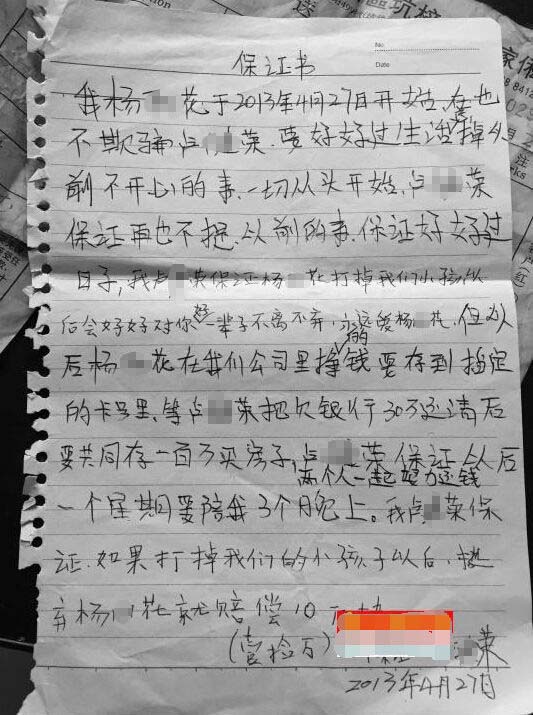 No.
Date
保证书
我杨 花于2013年4月27日开始在也
不欺骗卢 荣.要好好过生活掉从
前不开心的事.一切从头开始.卢 荣
保证再也不提.从前的事.保证好好过
日子,我卢 荣保证杨 花打掉我们小孩从
后会好好对你好一辈子不离不弃,永远爱杨 花.但从
后杨 花在我们公司里挣的钱要存到指定
的卡号里.等卢 荣把欠银行30万还清后
要共同存一百万买房子,卢 荣保证从后
两个人一起努力还钱
一个星期要陪我3个月晚上。我卢 荣保
证.如果打掉我们的小孩子以后,抛
弃杨 花就赔偿10万
(壹捡万) 荣
2013年4月27日